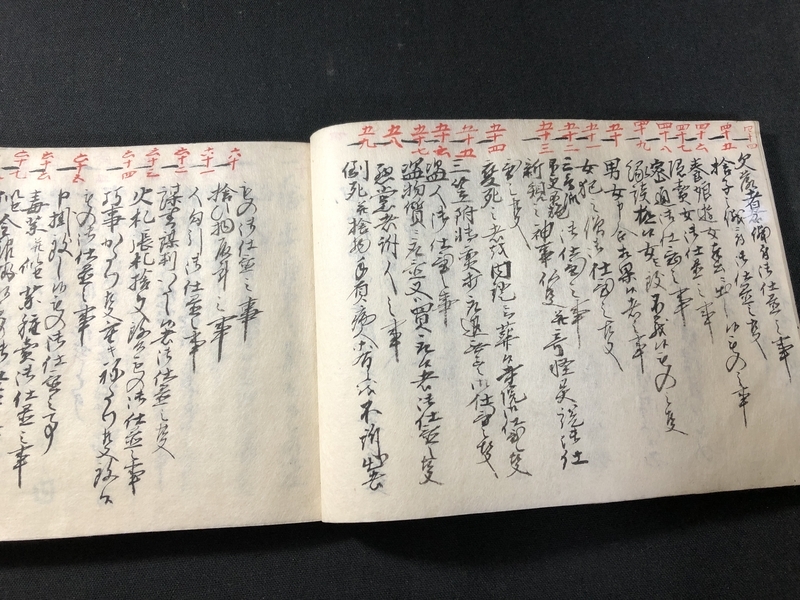 四十四 欠落者之儀ニ付御仕置之事
四十五 捨子之儀ニ付御仕置之事
四十六 養娘遊女奉公ニ出し候もの之事
四十七 隠売女御仕置之事
四十八 密通御仕置之事
四十九 縁談極候女と不義候もの之事
五十 男女申合相果候者之事
五十一 女犯之僧御仕置之事
五十二 三鳥派御仕置之事
五十三 新規之神事仏事并奇怪異説御仕
置之事
五十四 変死之者を内証ニて葬候寺院御仕置之事
五十五 三笠附博奕打取退無尽御仕置之事
五十六 盗人御仕置之事
五十七 盗物質ニ取又ハ買取候者御仕置之事
五十八 悪党者訴人之事
五十九 倒死并捨物手負病人等有之不訴出
もの御仕置之事
六十 拾ひ物取計之事
六十一 人勾引御仕置之事
六十二 謀書謀判いたし候者御仕置之事
六十三 火札張札捨文致候もの御仕置之事
六十四 巧事かたり事重キねたり事致候
もの御仕置之事
六十五 申掛致し候もの御仕置之事
六十六 毒薬并似セ薬種売御仕置之事
六十七